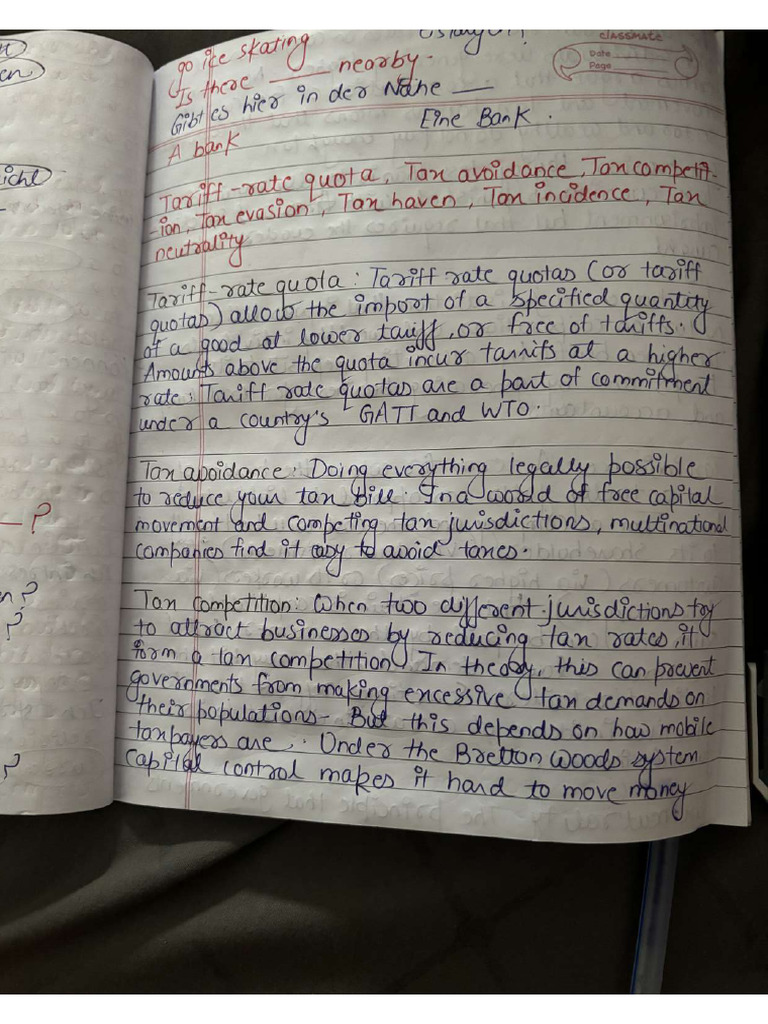 go ice skating
CLASSMATE
Date
Page
Is there ___ nearby.
Gibt es hier in der Nähe —
Eine Bank.
A bank
Tariff-rate quota, Tax avoidance, Tax competit-
-ion, Tax evasion, Tax haven, Tax incidence, Tax
neutrality
Tariff-rate quota: Tariff rate quotas (or tariff
quotas) allow the import of a specified quantity
of a good at lower tariff, or free of tariffs.
Amounts above the quota incur tarrifs at a higher
rate; Tariff rate quotas are a part of commitment
under a country's GATT and WTO.
Tax avoidance: Doing everything legally possible
to reduce your tax bill. In a world of free capital
movement and competing tax jurisdictions, multinational
companies find it easy to avoid taxes.
Tax competition: When two different jurisdictions try
to attract businesses by reducing tax rates, it
form a tax competition. In theory, this can prevent
governments from making excessive tax demands on
their populations- But this depends on how mobile
taxpayers are. Under the Bretton Woods system
capital control makes it hard to move money
icht
en
?
n?
?
?